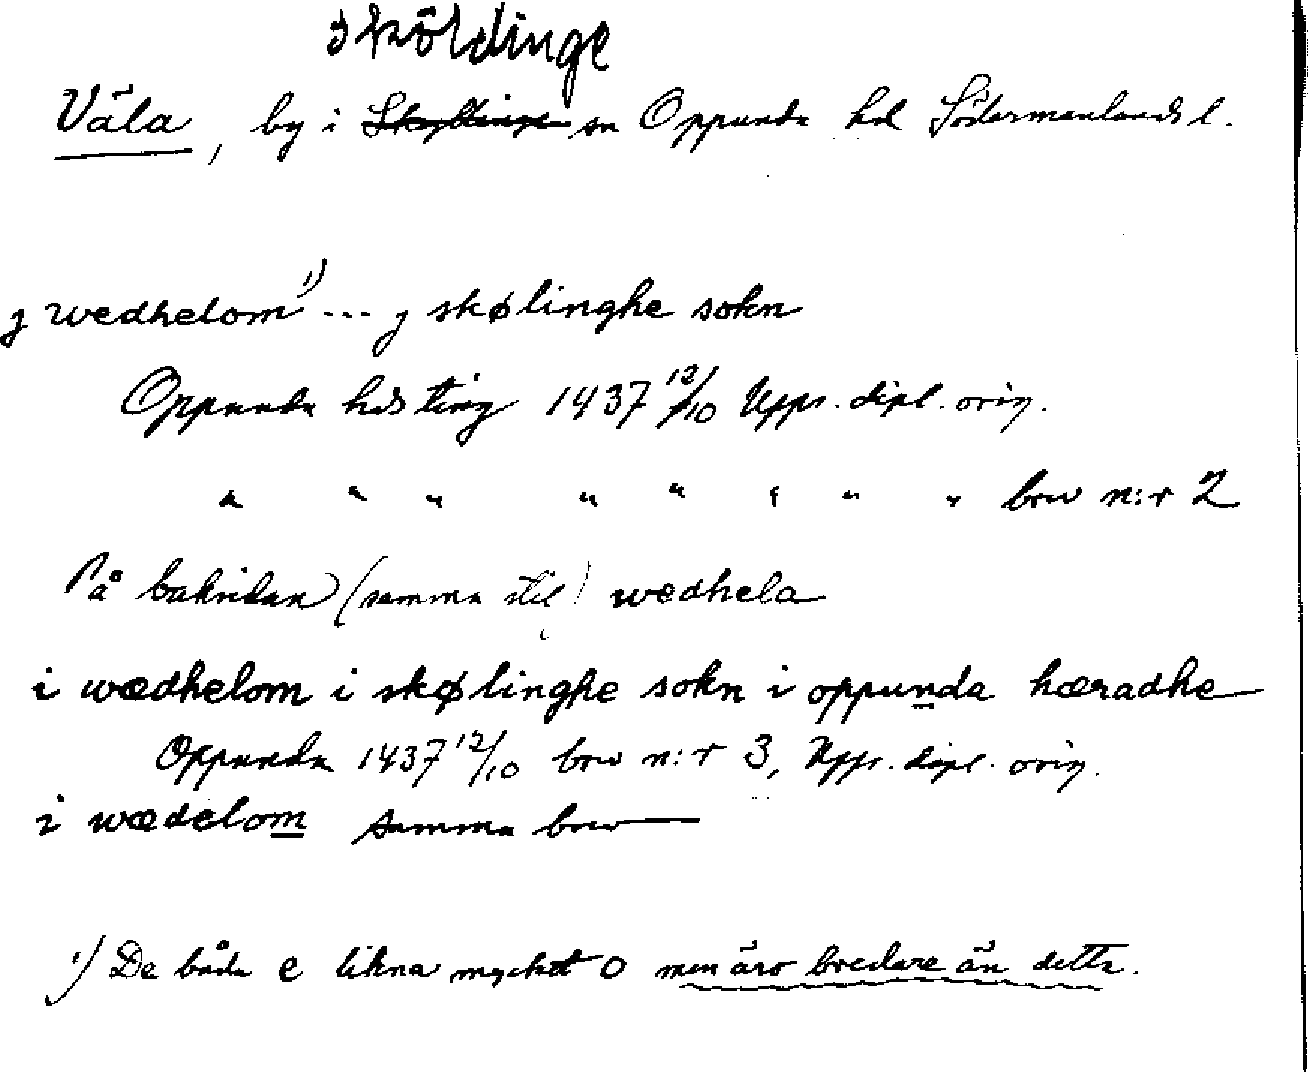 Sköldinge
Väla, by i Skyllinge sn Oppunda hd Södermanlands l.
j wedhelom 1) ... j skølinghe sokn
Oppunda hds ting 1437 12/10 Upps. dipl. orig.
" " " " " " " " brev n:r 2
På baksidan (samma stil) wedhela
i wædhelom i skølinghe sokn i oppunda hæradhe
Oppunda 1437 12/10 brev n:r 3, Upps. dipl. orig.
i wædelom samma brev
1) De båda e likna mycket o men äro bredare än detta.